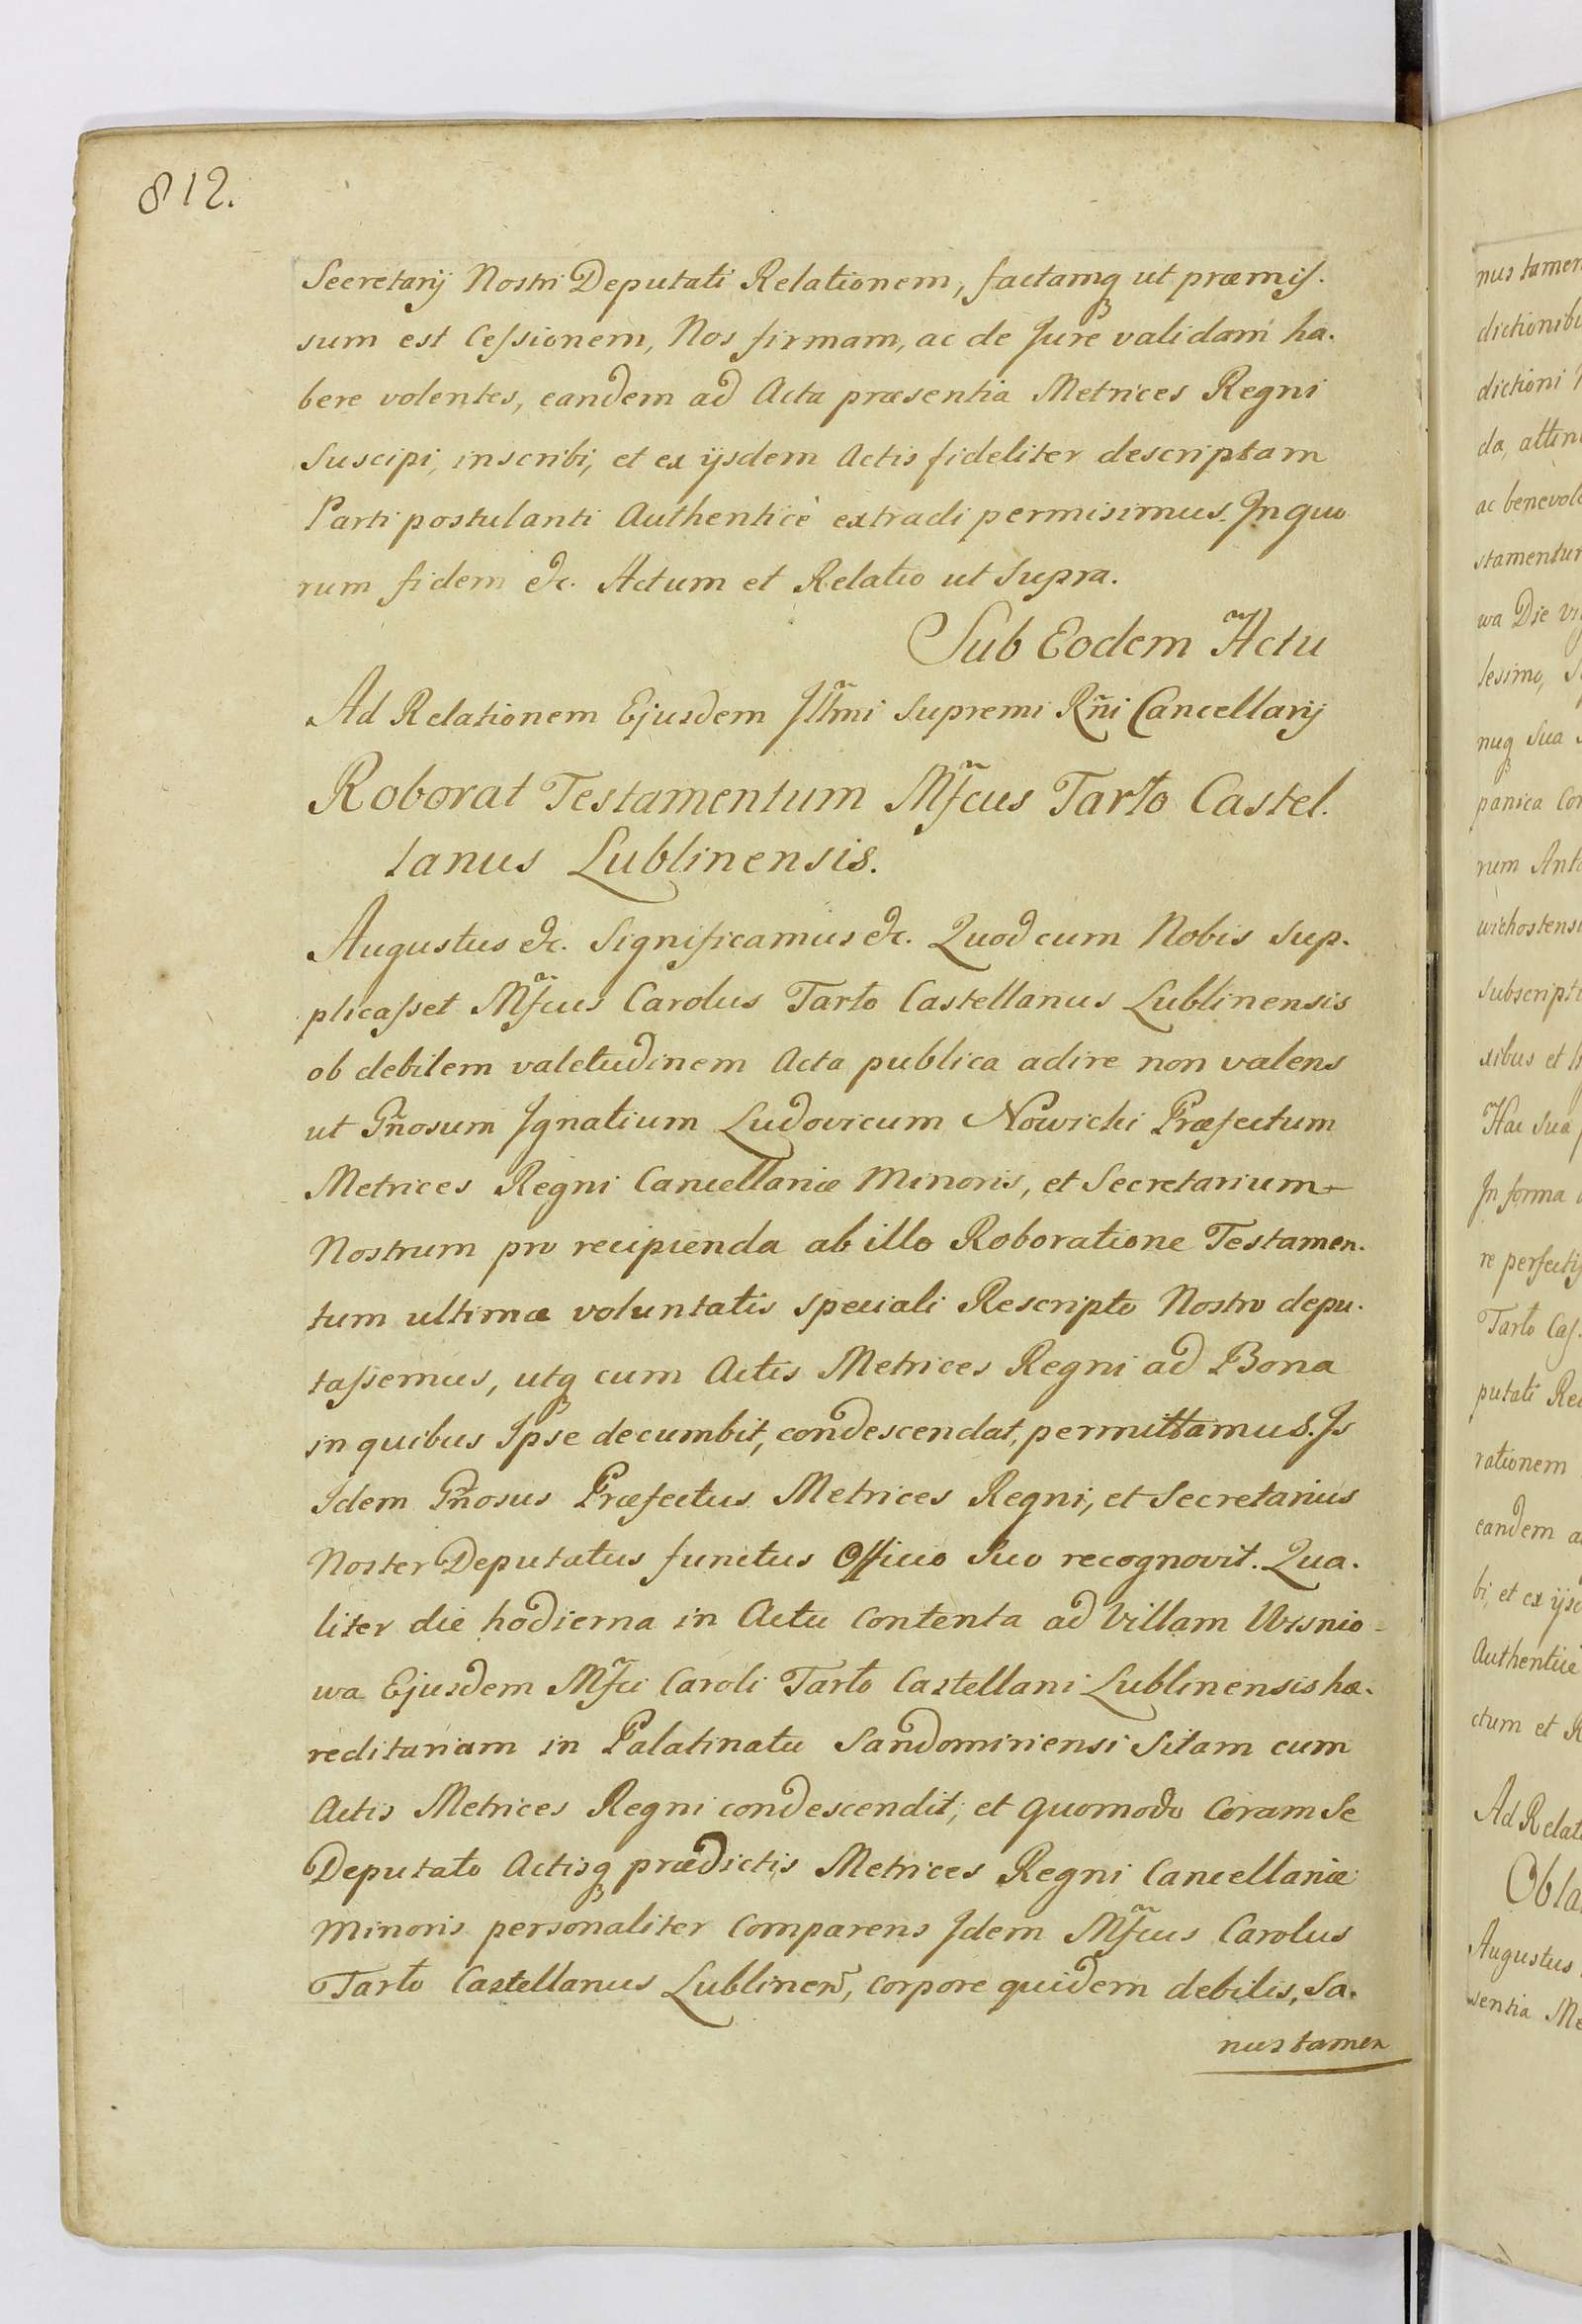 812.
Secretarij Nostri Deputati Relationem, factamq ut præmis.
sum est Cessionem, Nos firmam, ac de Jure validam ha.
bere volentes, eandem ad Acta præsentia Metrices Regni
Suscipi, inscribi, et ex ijsdem Actis fideliter descriptam
Parti postulanti Authenticè extradi permisimus. In quo
rum fidem &c. Actum et Relatio ut Supra.
Sub Eodem Actu
Ad Relationem Ejusdem Illm̃i Supremi Rñi Cancellarij
Roborat Testamentum Mf̃cus Tarło Castel.
lanus Lublinensis.
Augustus &c. Significamus &c. Quod cum Nobis Sup.
plicasset Mf̃cus Carolus Tarło Castellanus Lublinensis
ob debilem valetudinem Acta publica adire non valens
ut Gñosum Ignatium Ludovicum Nowicki Præfectum
Metrices Regni Cancellariæ Minoris, et Secretarium
Nostrum pro recipienda ab illo Roboratione Testamen.
tum ultimæ voluntatis speciali Rescripto Nostro depu.
tassemus, utq cum Actis Metrices Regni ad Bona
in quibus Ipse decumbit, condescendat, permittamus. Is
Idem Gñosus Præfectus Metrices Regni, et Secretarius
Noster Deputatus functus Officio Suo recognovit. Qua.
liter die hodierna in Actu Contenta ad Villam Ursnio=
wa Ejusdem Mf̃ci Caroli Tarło Castellani Lublinensis hæ.
reditariam in Palatinatu Sandomiriensi Sitam cum
Actis Metrices Regni condescendit, et quomodo Coram Se
Deputato Actisq prædictis Metrices Regni Cancellariæ
Minoris personaliter Comparens Idem Mf̃cus Carolus
Tarło Castellanus Lublineñ, corpore quidem debilis, Sa.
nus tamen
nus tamen
dictionibu
dictioni
da, attin
ac benevol
stamentum
wa Die vi
lesimo,
nuq Sua
panica Cor
rum Anto
wichostensi
Subscripti
xibus et
Hac Sua
In forma
re perfecti
Tarło Cas.
putati Re
rationem
eandem a
bi, et ex ijsd
Authenticè
ctum et R
Ad Relati
Obla
Augustus
sentia Me